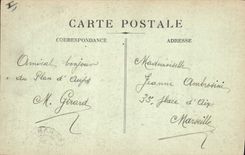 CARTE POSTALE
CORRESPONDANCE
ADRESSE
Amical bonjour
du Plan d'Aups
M. Gérard
Mademoiselle
Jeanne Ambrosini
35 place d'Aix
Marseille